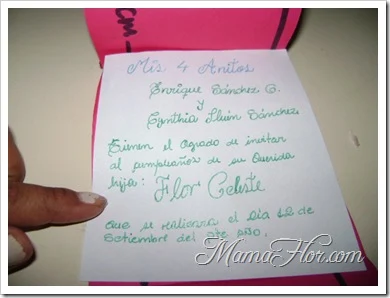 CM
Mis 4 Añitos
Enrique Sánchez G.
y
Cynthia Lluén Sánchez
Tienen el Agrado de invitar
al cumpleaños de su Querida
hija: Flor Celeste
que se realizara el Dia 12 de
Setiembre del Pte Año.
MamaFlor.com